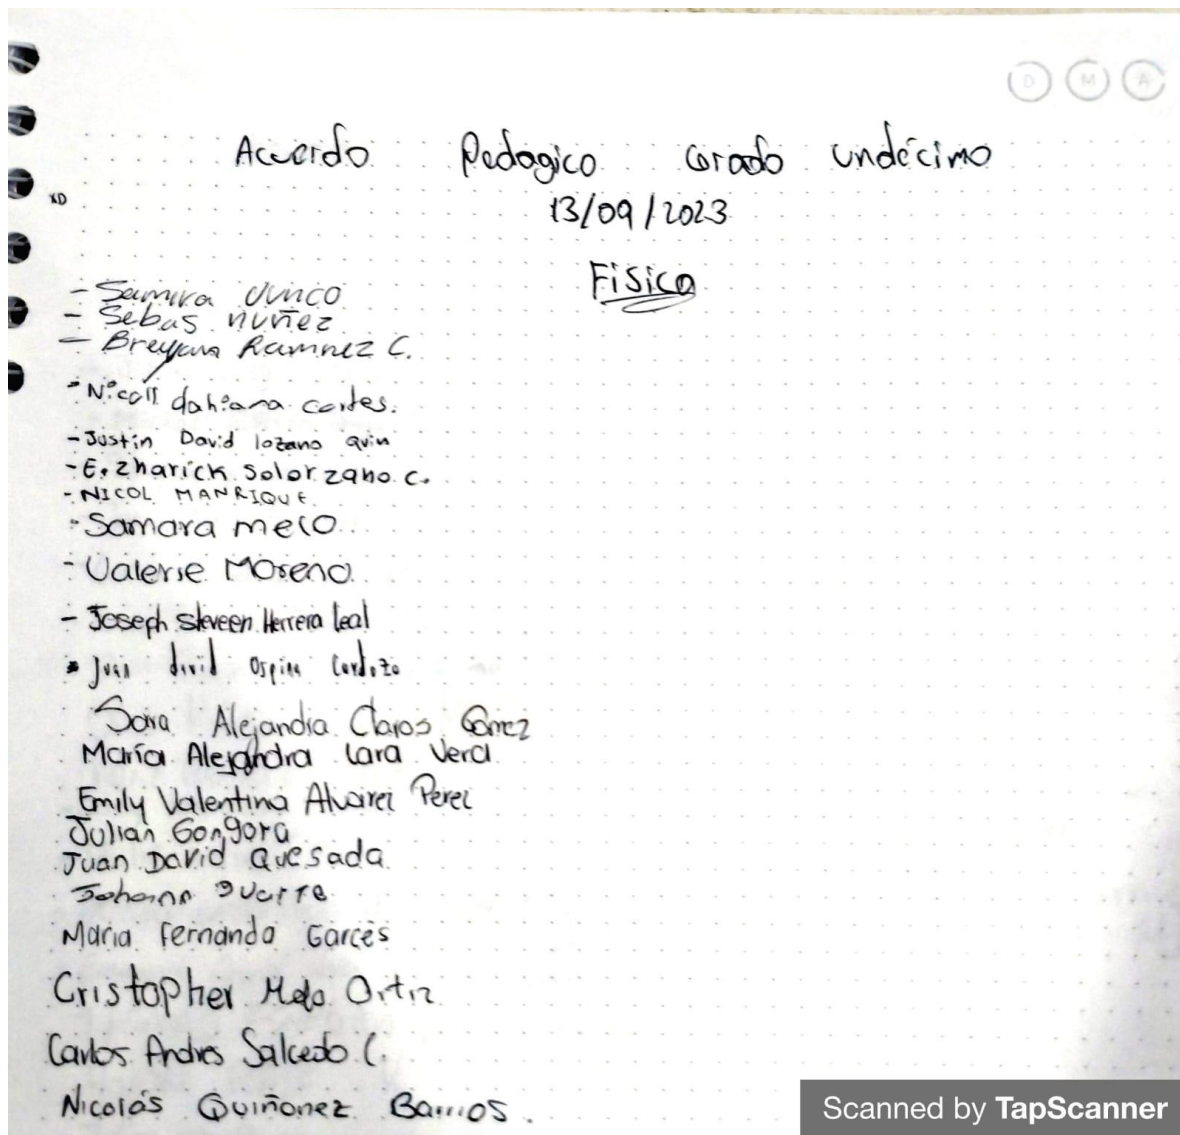 D M A
Acuerdo Pedagico Grado undécimo
XD
13/09/2023
Física
- Samira Junco
- Sebas nuñez
- Breyana Ramirez C.
- Nicoll dahiana cortes.
- Justin David lozano quin
- E. zharick solorzano c.
- NICOL MANRIQUE
- Samara melo
- Valerie Moreno
- Joseph steveen Herrera leal
* Juan david Ospina Cardozo
Sara Alejandra Claros Gomez
María Alejandra Lara Vera
Emily Valentina Alvarez Perez
Julian Gongora
Juan David Quesada
Johann
Maria Fernanda Garcés
Cristopher Melo Ortiz
Carlos Andres Salcedo C.
Nicolás Quiñonez Barrios.
Scanned by TapScanner